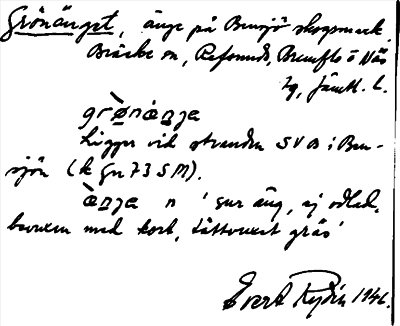 Grönänget, änge på Bensjö skogsmark,
Bräcke sn, Refsunds, Brunflo o Näs
tg, Jämtl. l.
grø̀nànja
Ligger vid stranden SVB i Ben-
sjön (k gn 73 SM).
ànja n 'sur äng, ej odlad,
bevuxen med kort, tättvuxet gräs'
Evert Rydin 1946.